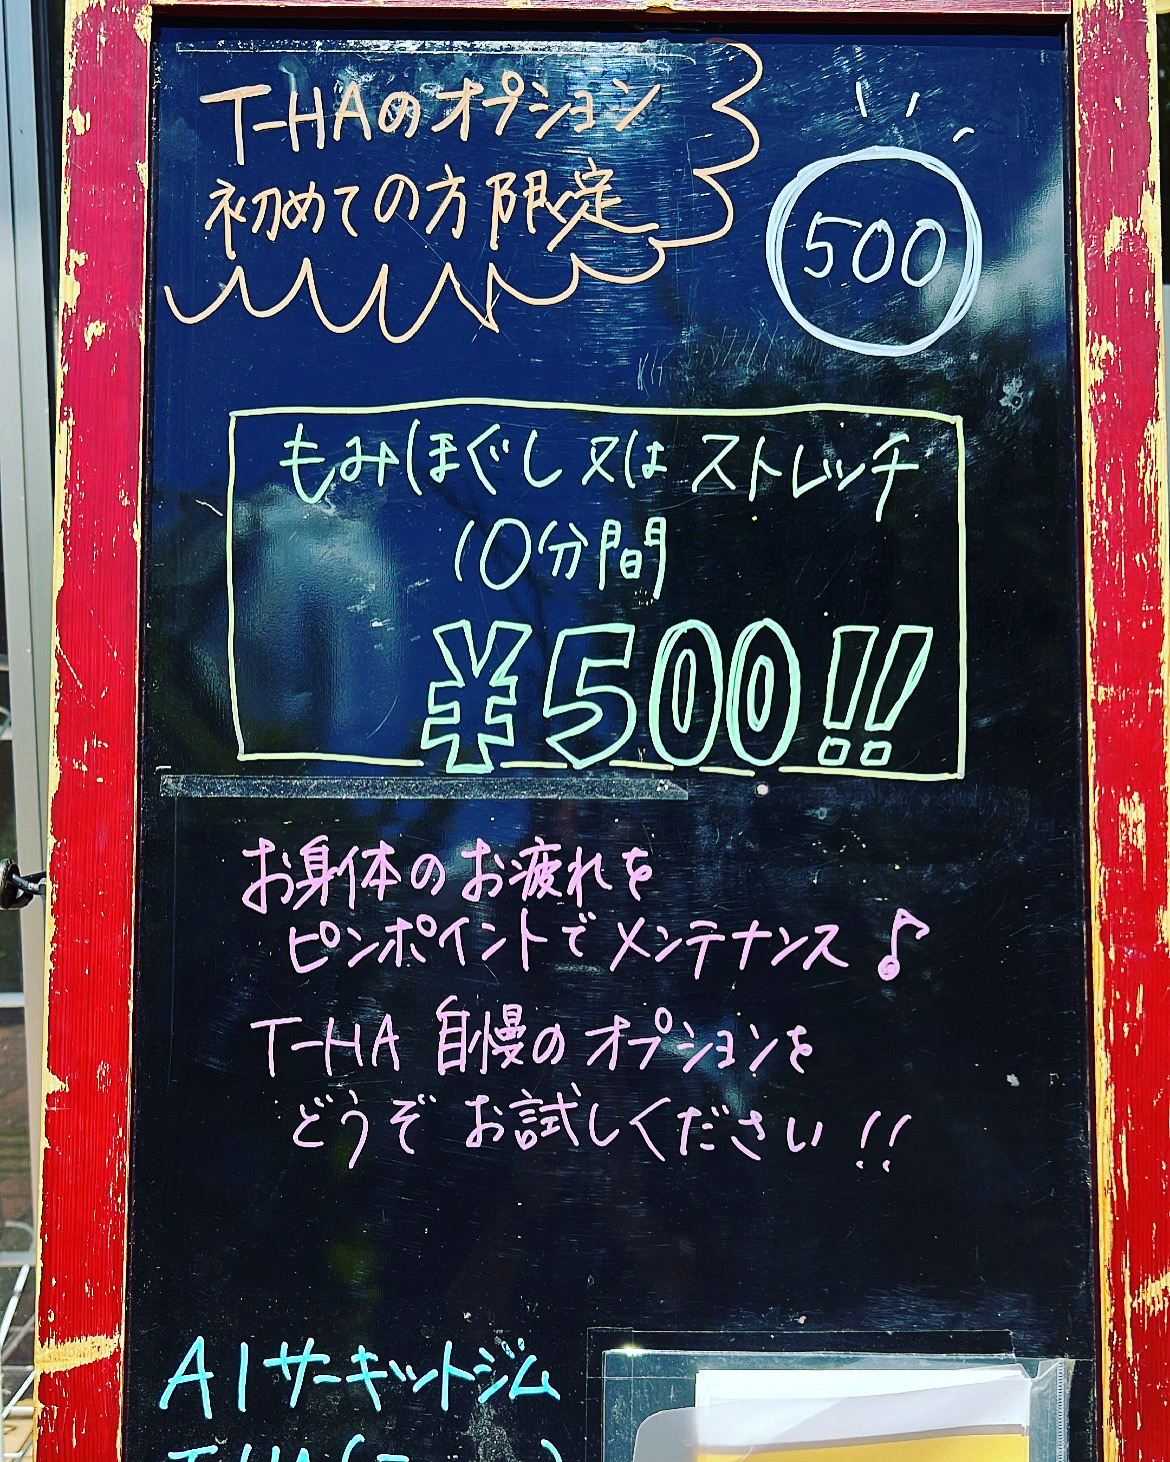 T-HAのオプション
初めての方限定
500
もみほぐし又はストレッチ
10分間
¥500!!
お身体のお疲れを
ピンポイントでメンテナンス♪
T-HA 自慢のオプションを
どうぞ お試しください!!
AIサーキットジム
T-HA(